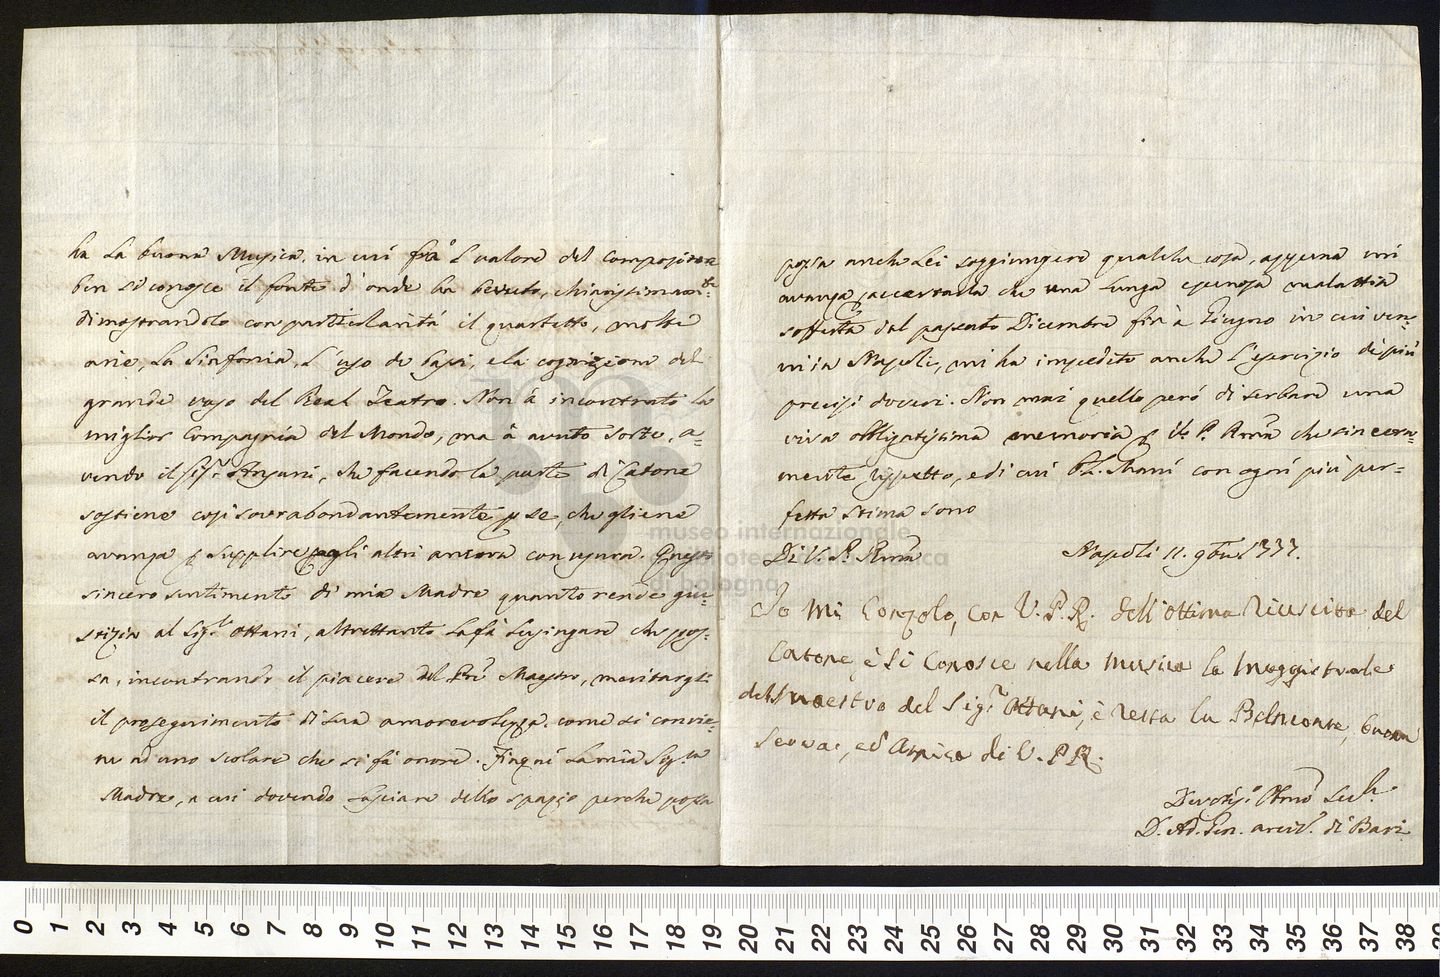 ha la buona Musica, in cui fra l valore del Compositore
ben si conosce il fonte d'onde ha bevuto, chiarissimamte
dimostrandolo con particolarità il quartetto, molte
arie, la Sinfonia, l'uso de bassi, e la cognizione del
grande vaso del Real Teatro. Non à incontrato la
miglior Compagnia del Mondo, ma à avuto sorte, a=
vendo il Sigr. Ansani, che facendo la parte di Catone
sostiene così sovrabondantemente p se, che gliene
avanza p supplire agli altri ancora con usura. Questo
sincero sentimento di mia Madre quanto rende giu=
stizia al Sigr. Ottani, altrettanto la fà lusingare che pos=
sa, incontrando il piacere del Maestro, meritargli
il proseguimento di sua amorevolezza, come si convie=
ne ad uno scolare che si fà onore. Finquì la mia Sigra
Madre, a cui dovendo lasciare dello spazio perché possa
possa anche Lei soggiungere qualche cosa, appena mi
avanza p accertarla che una lunga e penosa malattia
sofferta dal passato Dicembre fin à Giugno in cui ven=
ni in Napoli, mi ha impedito anche l'esercizio de più
precisi doveri. Non mai quello però di serbare una
viva obbligatissima memoria p che sincera=
mente rispetto, e di cui con ogni più per=
fetta stima sono
Di V. P. Rma Napoli 11. 9bre 1777.
Io Mi Conzolo, con V. P. R. dell'ottima riuscita del
Catone è si Conosce nella musica la Maggistrale
del Maestro del Sigr. Ottani, è resta la Belmonte, buona
serva, ed Amica di V. P. R.
Devotiso. Obmo
D. Ad. Gen. arciv. di Bari
museo internazionale
e biblioteca della musica
di bologna
0 1 2 3 4 5 6 7 8 9 10 11 12 13 14 15 16 17 18 19 20 21 22 23 24 25 26 27 28 29 30 31 32 33 34 35 36 37 38 39